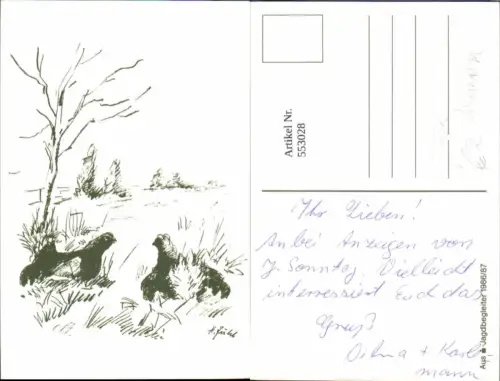 Artikel Nr.
553028
Ihr Lieben!
Anbei Anzeigen vom
J. Sonntag. Vielleicht
interressiert Euch das
Gruß
+ Karl
mann
Aus Jagdbegleiter 1986/87